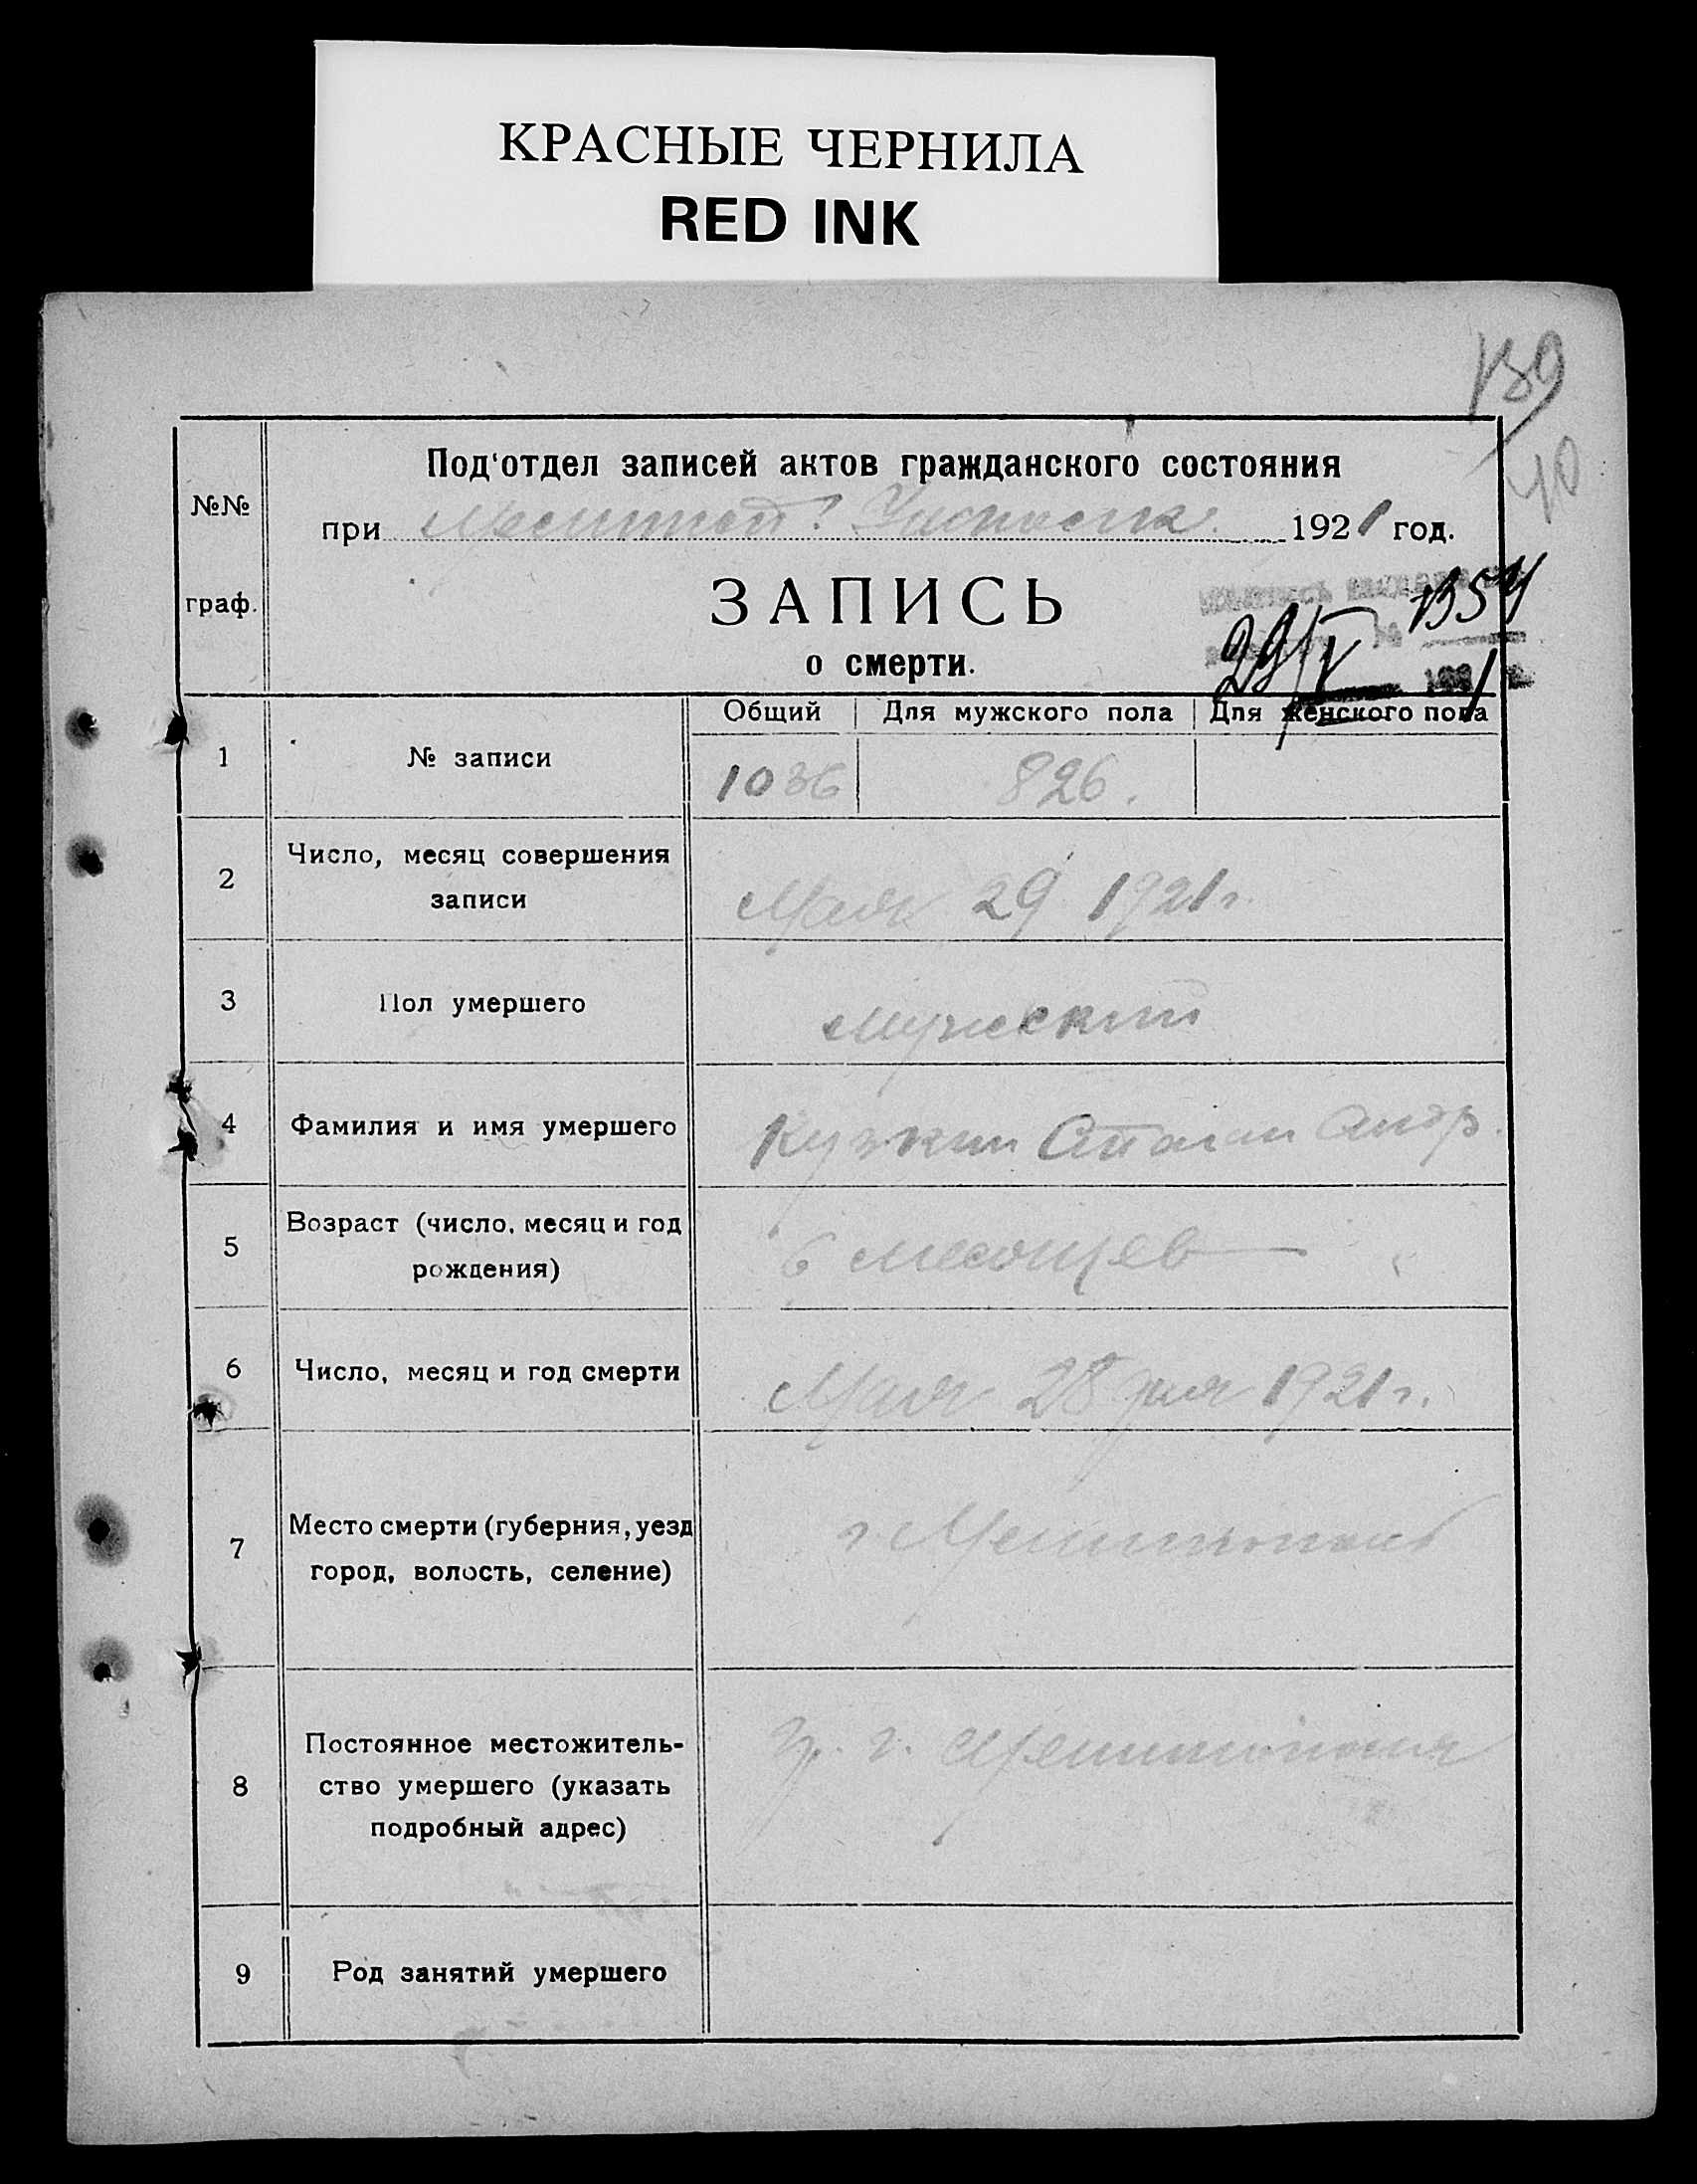 КРАСНЫЕ ЧЕРНИЛА
RED INK
139
40
№№ граф.
Под'отдел записей актов гражданского состояния
при 1921 год.
ЗАПИСЬ
о смерти.
29/V 1354
1
Общий Для мужского пола Для женского пола
1 № записи 1036 826.
2 Число, месяц совершения
записи
Мая 29 1921 г.
3 Пол умершего мужский
4 Фамилия и имя умершего Андр.
5 Возраст (число, месяц и год
рождения)
6 месяцев
6 Число, месяц и год смерти Мая 28 дня 1921 г.
7 Место смерти (губерния, уезд
город, волость, селение)
г Мелитополь
8 Постоянное местожитель-
ство умершего (указать
подробный адрес)
гр. г. Мелитополя
9 Род занятий умершего